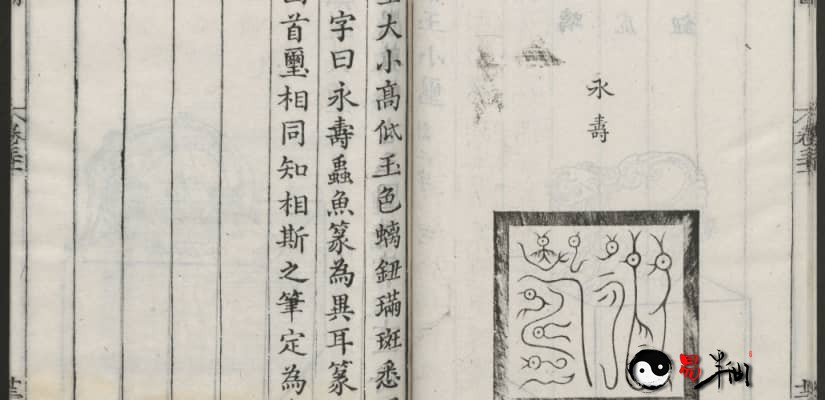 永壽
大小髙低玉色螭鈕璊斑悉
字曰永壽蟲魚篆為異耳篆
首璽相同知相斯之筆定為